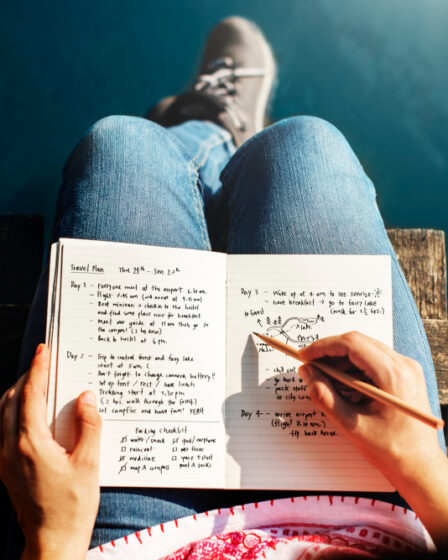 Travel Plan Thu 28th - Sun
Day 1 - Everyone meet at the airport 6.00 am
- Flight 7.45 am (will arrive at 9.15 am)
- Rent minivan > checkin to the hostel
and find some place nice for breakfast
- Meet our guide at 11 am then go to
the canyon! (2 hr.)
- Back to hostel at 6 pm
Day 2 - Trip to central forest and fairy lake
start at 5 am
- Don't forget to charge camera battery!!
- Set up tent / rest / have lunch
- Trekking start at 1.30 pm
(2 hrs. walking through the forest)
- Set campfire and have fun! YEAH
Packing Checklist
water / snack
raincoat
medicine
map & compass
ipad / earphone
pants + shirt
socks
Day 3 - Wake up at 4 am to see sunrise
- have breakfast → go to fairy lake
(walk for 1 ½ hrs)
to forest
lake
- chill
go back
- pack stuff
to city
Day 4 - arrive airport
(flight 8.10 am)
fly back home